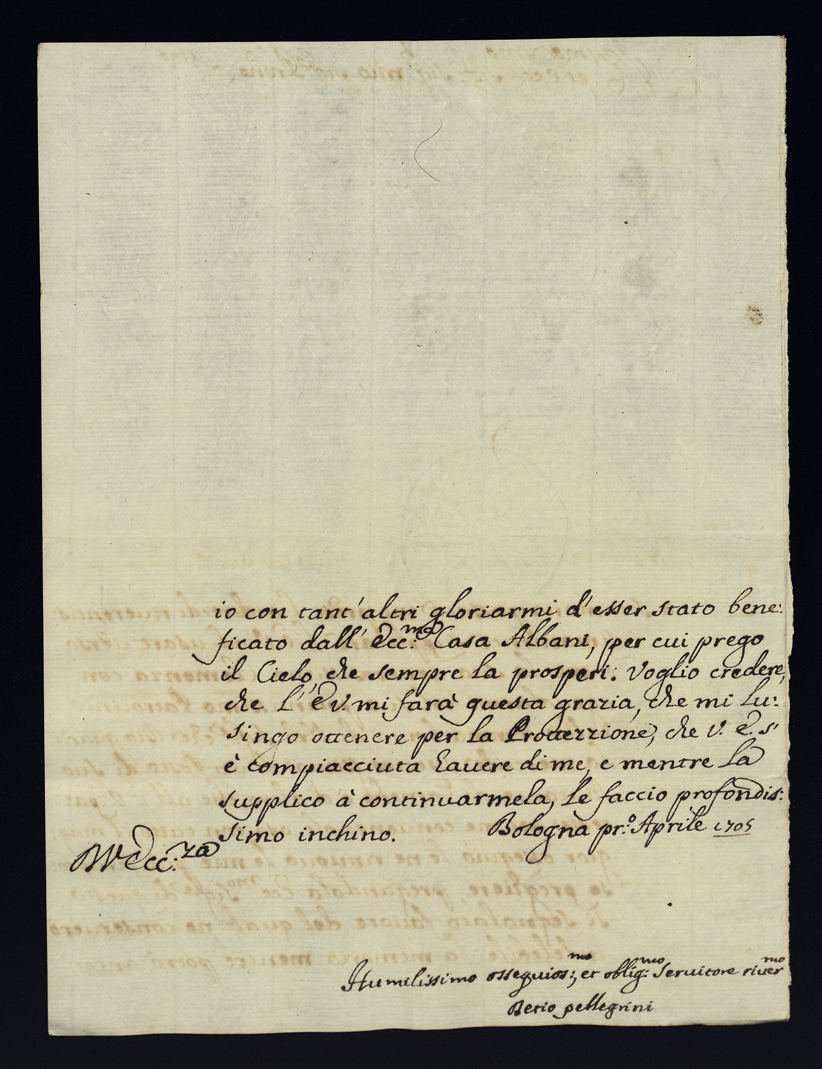 io con tant'altri gloriarmi d'esser stato bene:
ficato dall' Ecc:ma Casa Albani, per cui prego
il Cielo, che sempre la prosperi. Voglio credere,
che l'E V mi farà questa grazia, che mi lu:
singo ottenere per la Protezzione, che V. E. s'
è compiacciuta havere di me, e mentre la
supplico à continuarmela, le faccio profondis:
simo inchino. Bologna pr:o Aprile 1705
Ecc:za
Humilissimo osseguios:mo, et oblig:mo Servitore river:mo
pellegrini